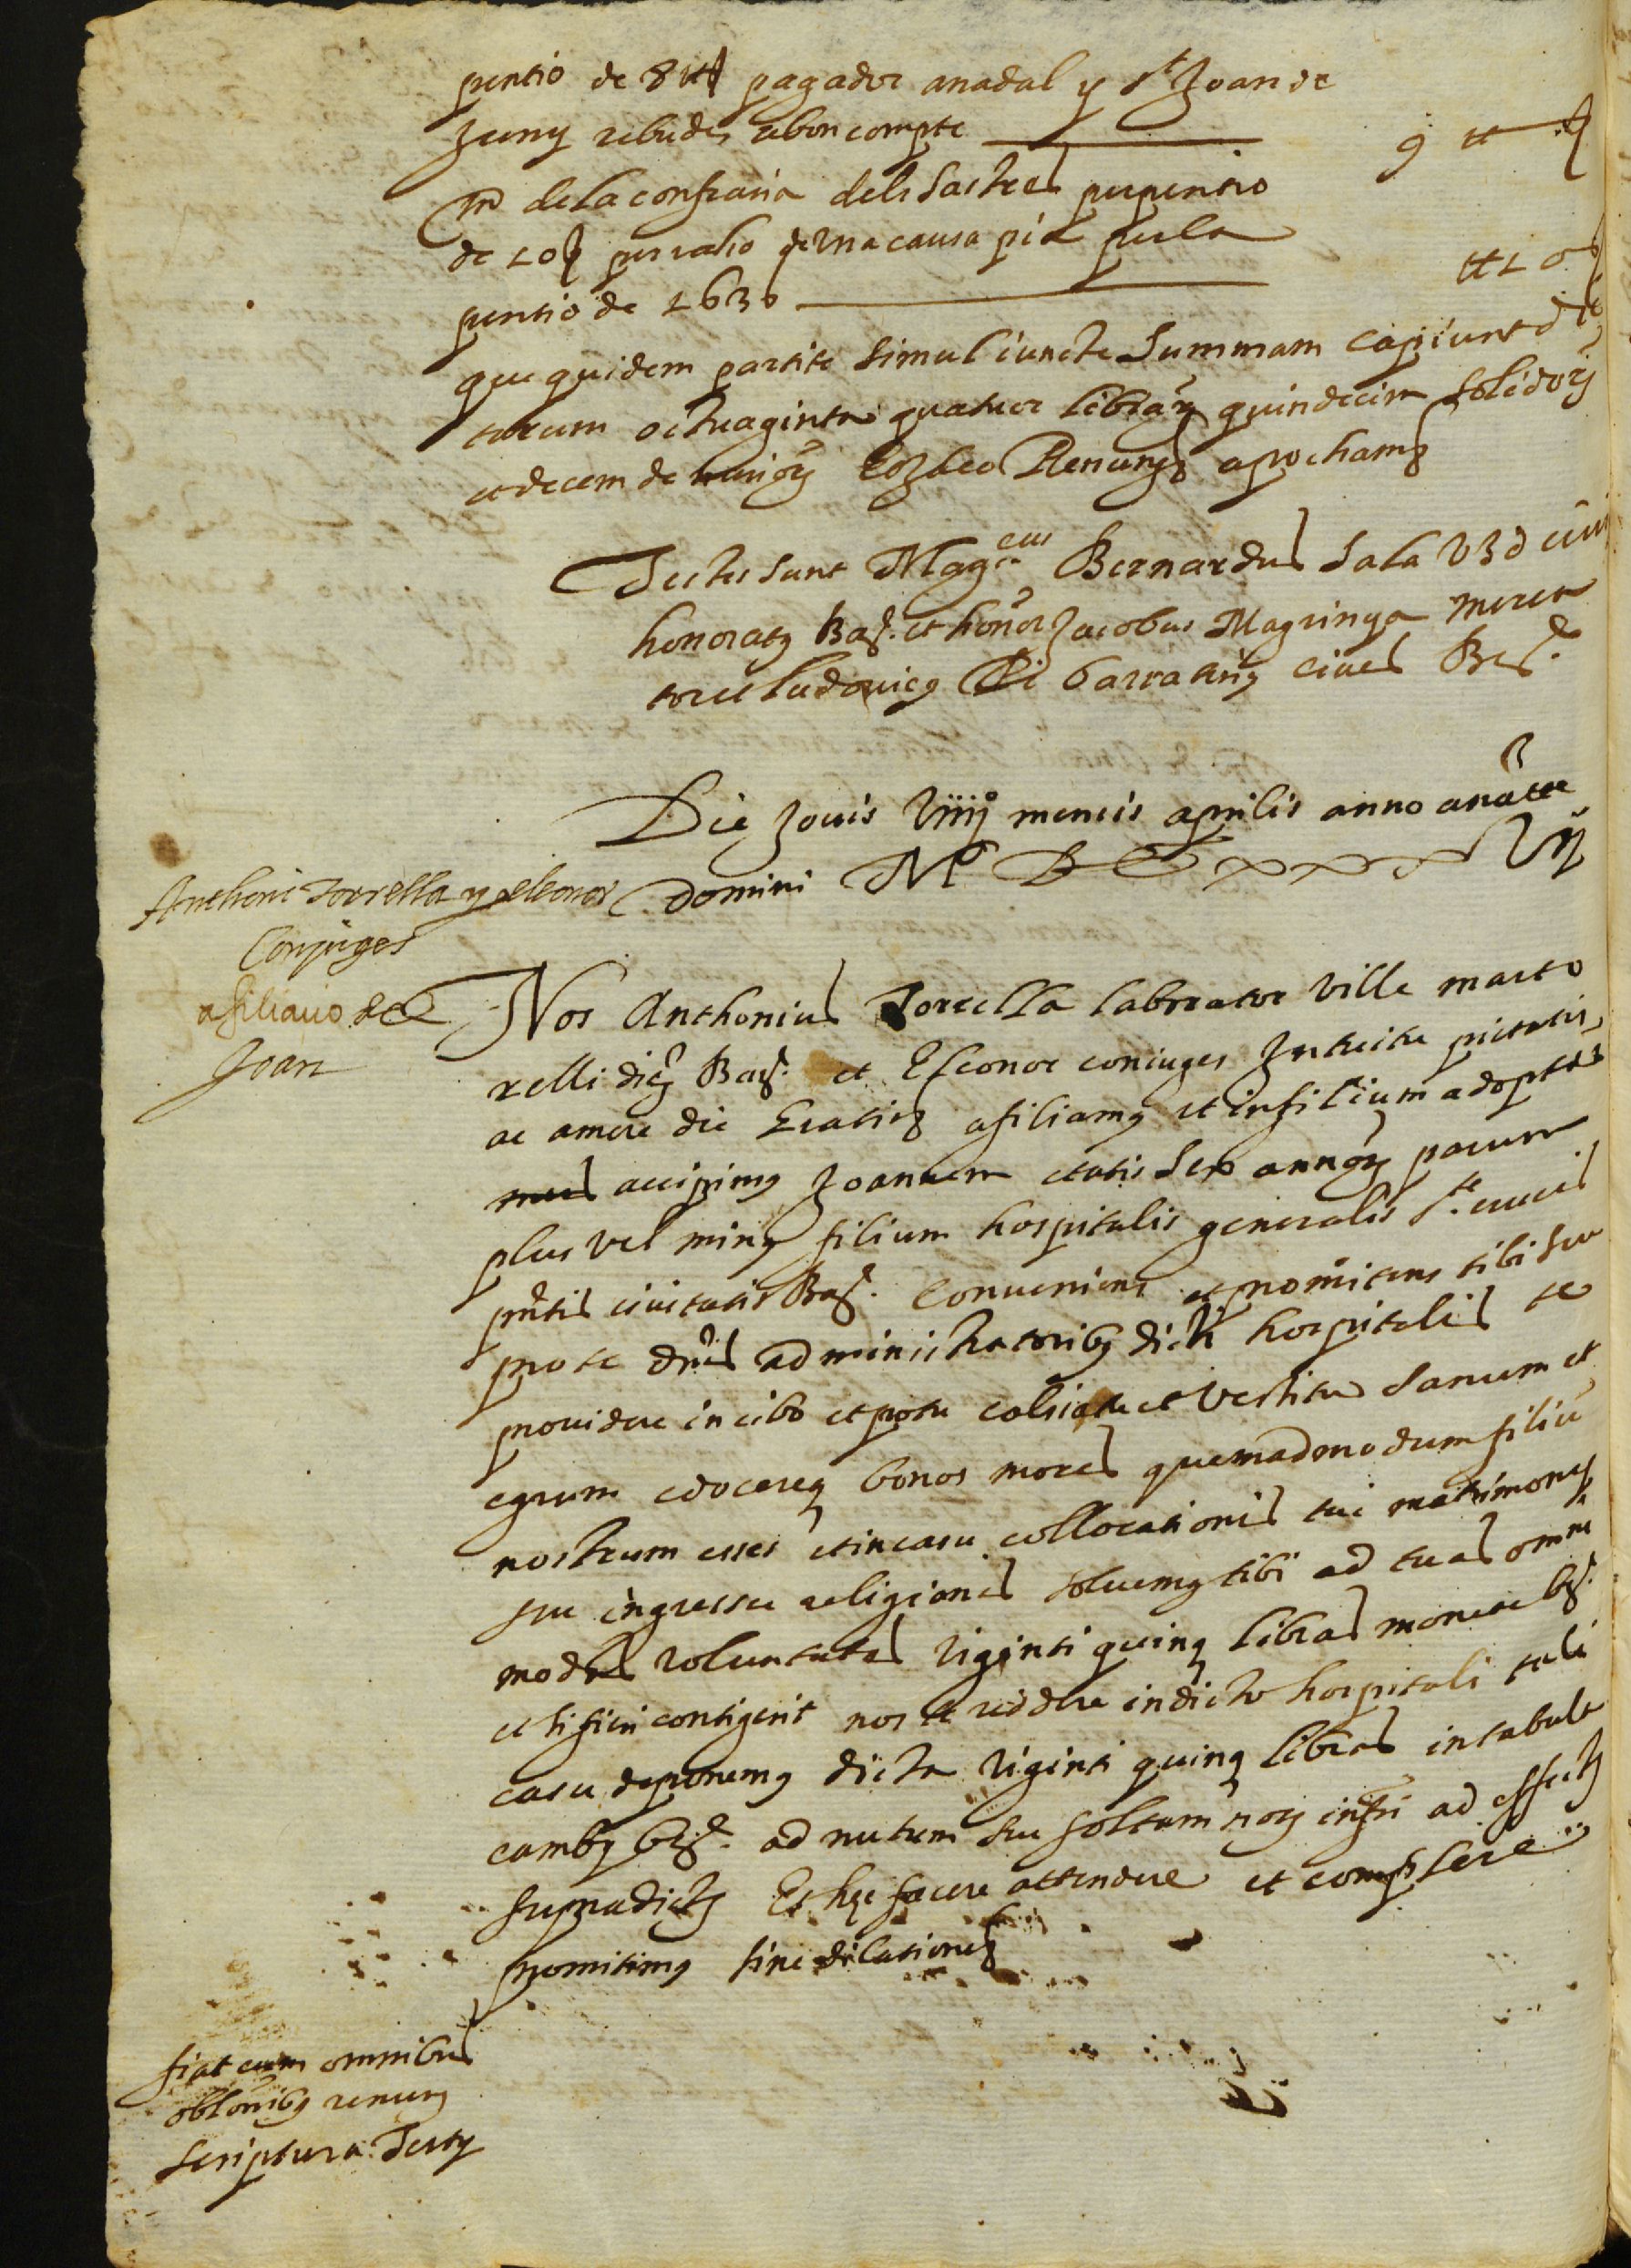 pentio de 8 ₶ pagador anadal y St Joan de
Juny rebudes abon compte 9 ₶
Mo de la confraria dels Sastres per pentio
de 10ß per raho de una causa pia per la
pentio de 1630 ₶ 10ß
que quidem partite simul iuncte summam capiunt
octuaginta quatuor librar quindecim solidor
et decem denarior Et Ideo Renung apocham
Testes sunt Magcus Bernardus Sala V J d civis
honoratus Bar. et honor Jacobus Magrinya merca
tor et Ludovicus Barratinus cives Bar.
Die Jovis viiij mensis aprilis anno a natte
Domini Mo DC xxxvij
Anthoni Torrella y Eleonor
Conjuges
afiliacio de
Joan
Nos Anthonius Torrella laborator ville marto
relli dioc Bar. et Eleonor coniuges Intuitu pietatis
ac amore die Gratis afiliamus et in filium adopti
accipimus Joannem etatis sex annor parum
plus vel minus filium hospitalis generalis Ste crucis
pntis civitatis Bar. Convenimus et promitimus tibi seu
pro te dnis administratoribus dicti hospitalis te
providere in cibo et potu calsiatu et vestitu sanum et
egrum edocereque bonos mores quemadmodum filiu
nostrum esses et in casu collocationis tui matrimonij
seu ingressu religionis solvemus tibi ad tuas omni
modas voluntates viginti quinque libras monete bar.
et si fieri contigerit nos te reddere in dicto hospitali tali
casu deponemus dicta viginti quinque libras in tabula
cambij bar. ad nutum seu soltam ad effectu
supradictu Et hec facere attendere et complere
promitimus sine dilatione
fiat cum omnibus
oblonibus renun
scriptura Tertij